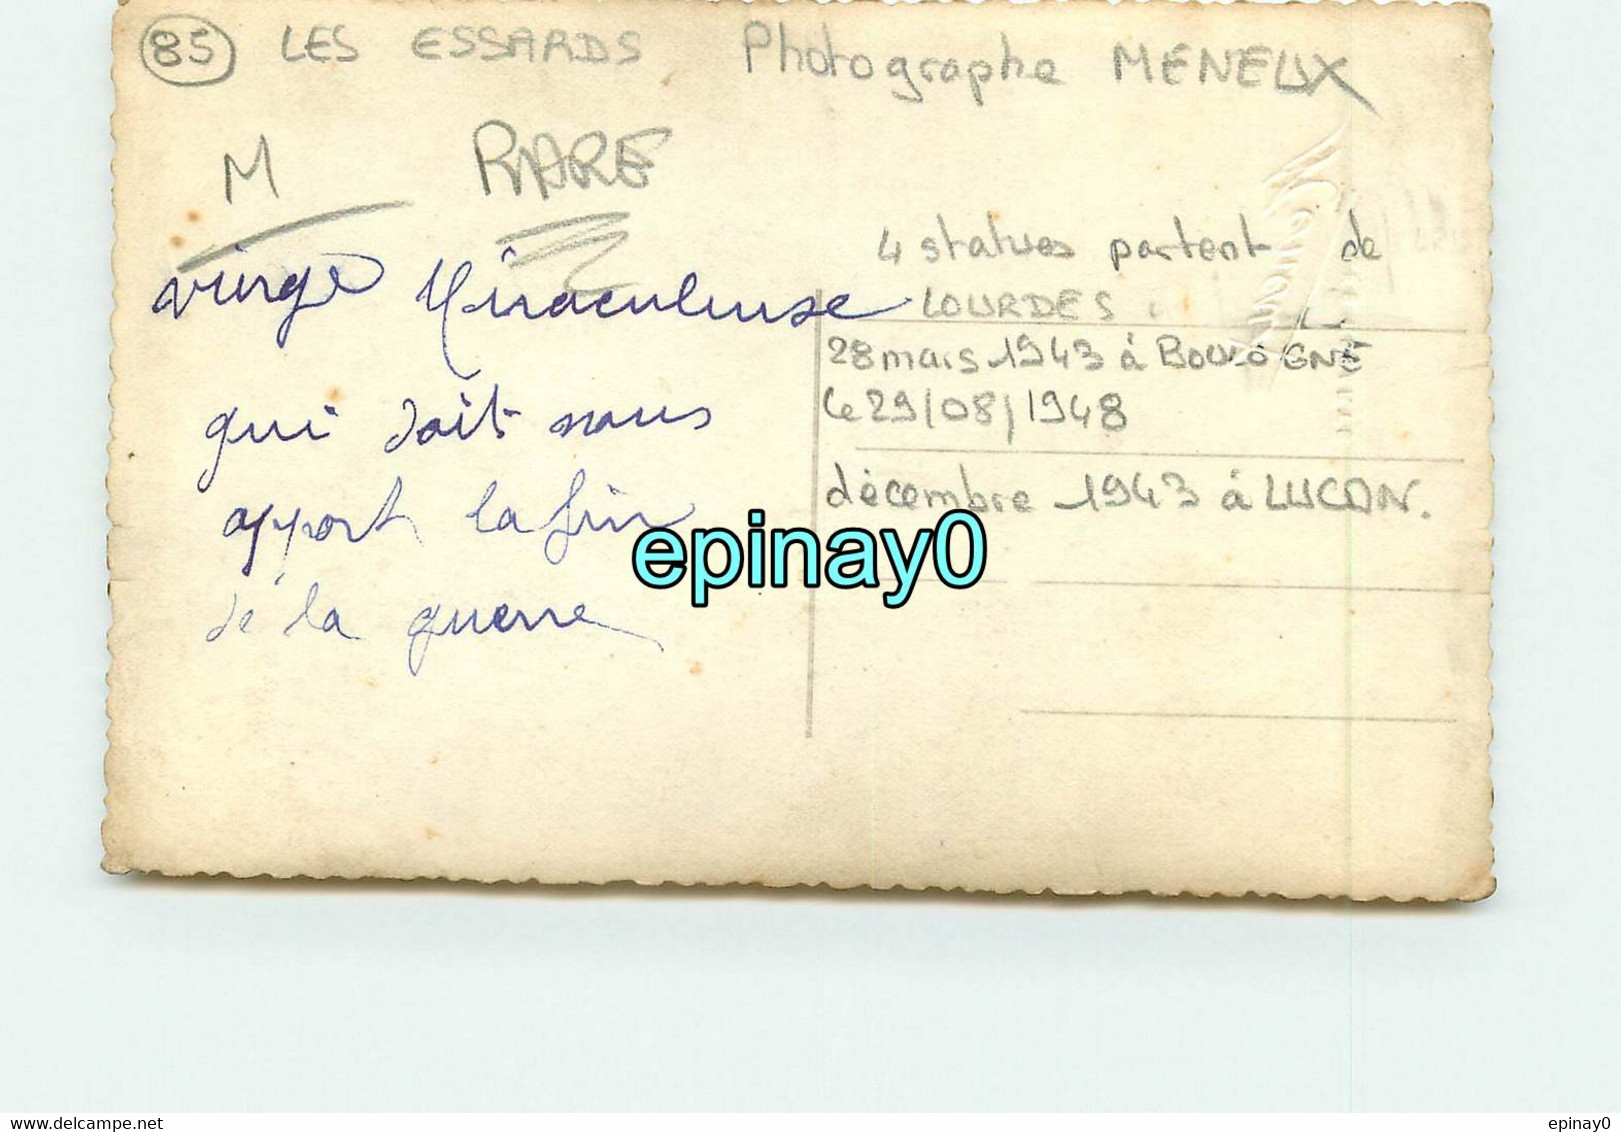 85 LES ESSARDS Photographe MENEUX
M RARE
vierge Miraculeuse
qui doit nous
apport la fin
de la guerre
4 statues partent de
LOURDES
28 mars 1943 à BOULOGNE
le 29/08/1948
décembre 1943 à LUCON.
epinay0
www.delcampe.net
epinay0